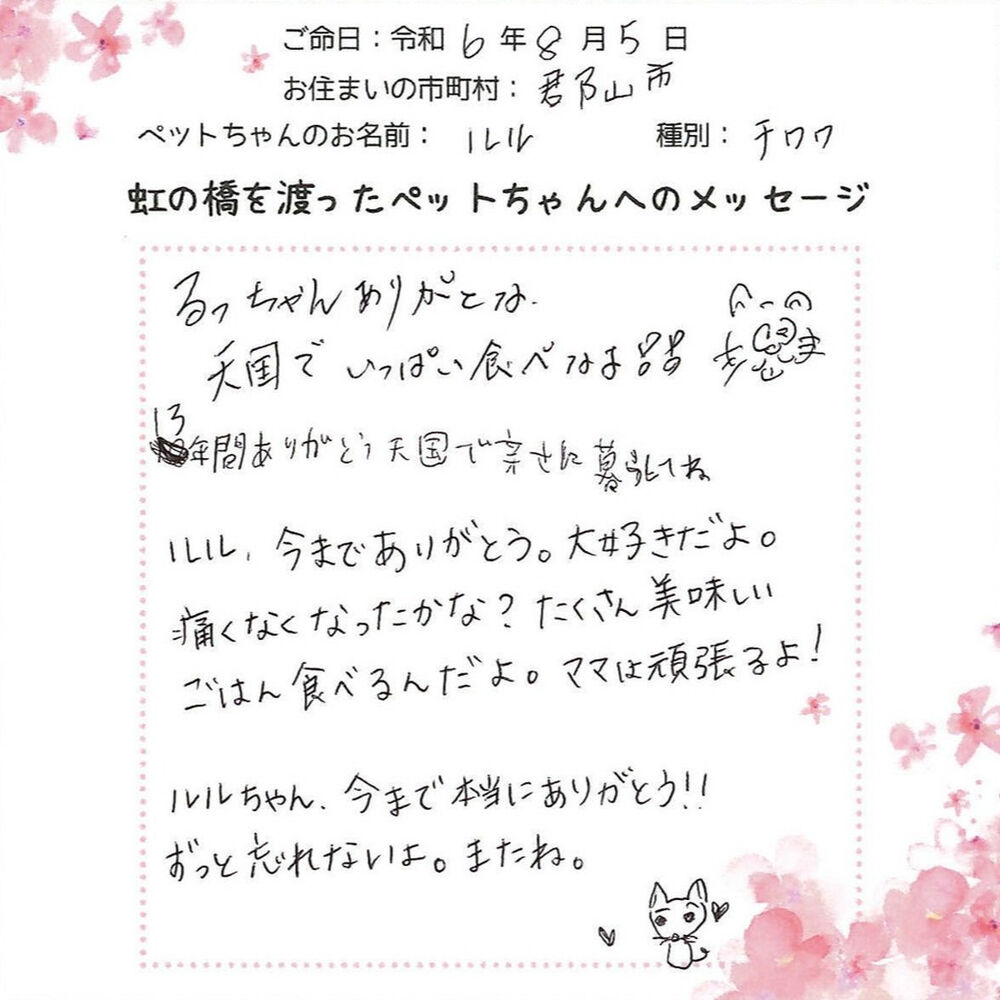 ご命日：令和 6 年 8 月 5 日
お住まいの市町村： 郡山市
ペットちゃんのお名前： ルル 種別： チワワ
虹の橋を渡ったペットちゃんへのメッセージ
るっちゃんありがとな.
天国でいっぱい食べなま
13年間ありがとう天国で幸せに暮らしてね
ルル、今までありがとう。大好きだよ。
痛くなくなったかな？たくさん美味しい
ごはん食べるんだよ。ママは頑張るよ！
ルルちゃん、今まで本当にありがとう!!
ずっと忘れないよ。またね。